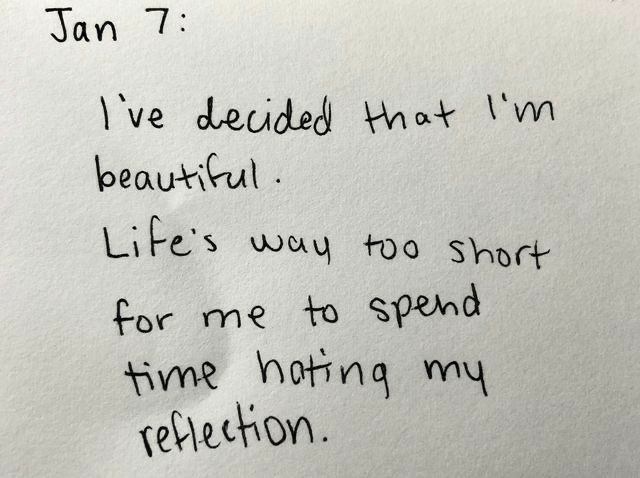 Jan 7:
I've decided that I'm
beautiful.
Life's way too short
for me to spend
time hating my
reflection.